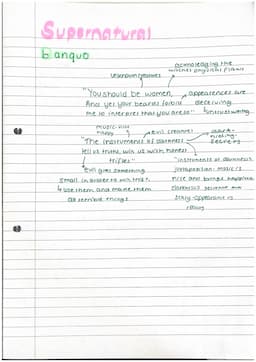 Supernatural
banquo
acknowledging the
witches physical flaws
unknown creatures
"You should be women,
And yet your beards forbid
me to interpret that you are so"
appearances are
deceiving
untrustworthy
music - will
happy
evil creatures
dark =
hiding
secrets
"The instruments of darkness
tell us truths, win us with honest
trifles"
Evil gives something
small in order to win trust,
& use them and make them
do terrible things
"instruments of darkness"
juxtaposition: music is
nice and brings happiness
darkness